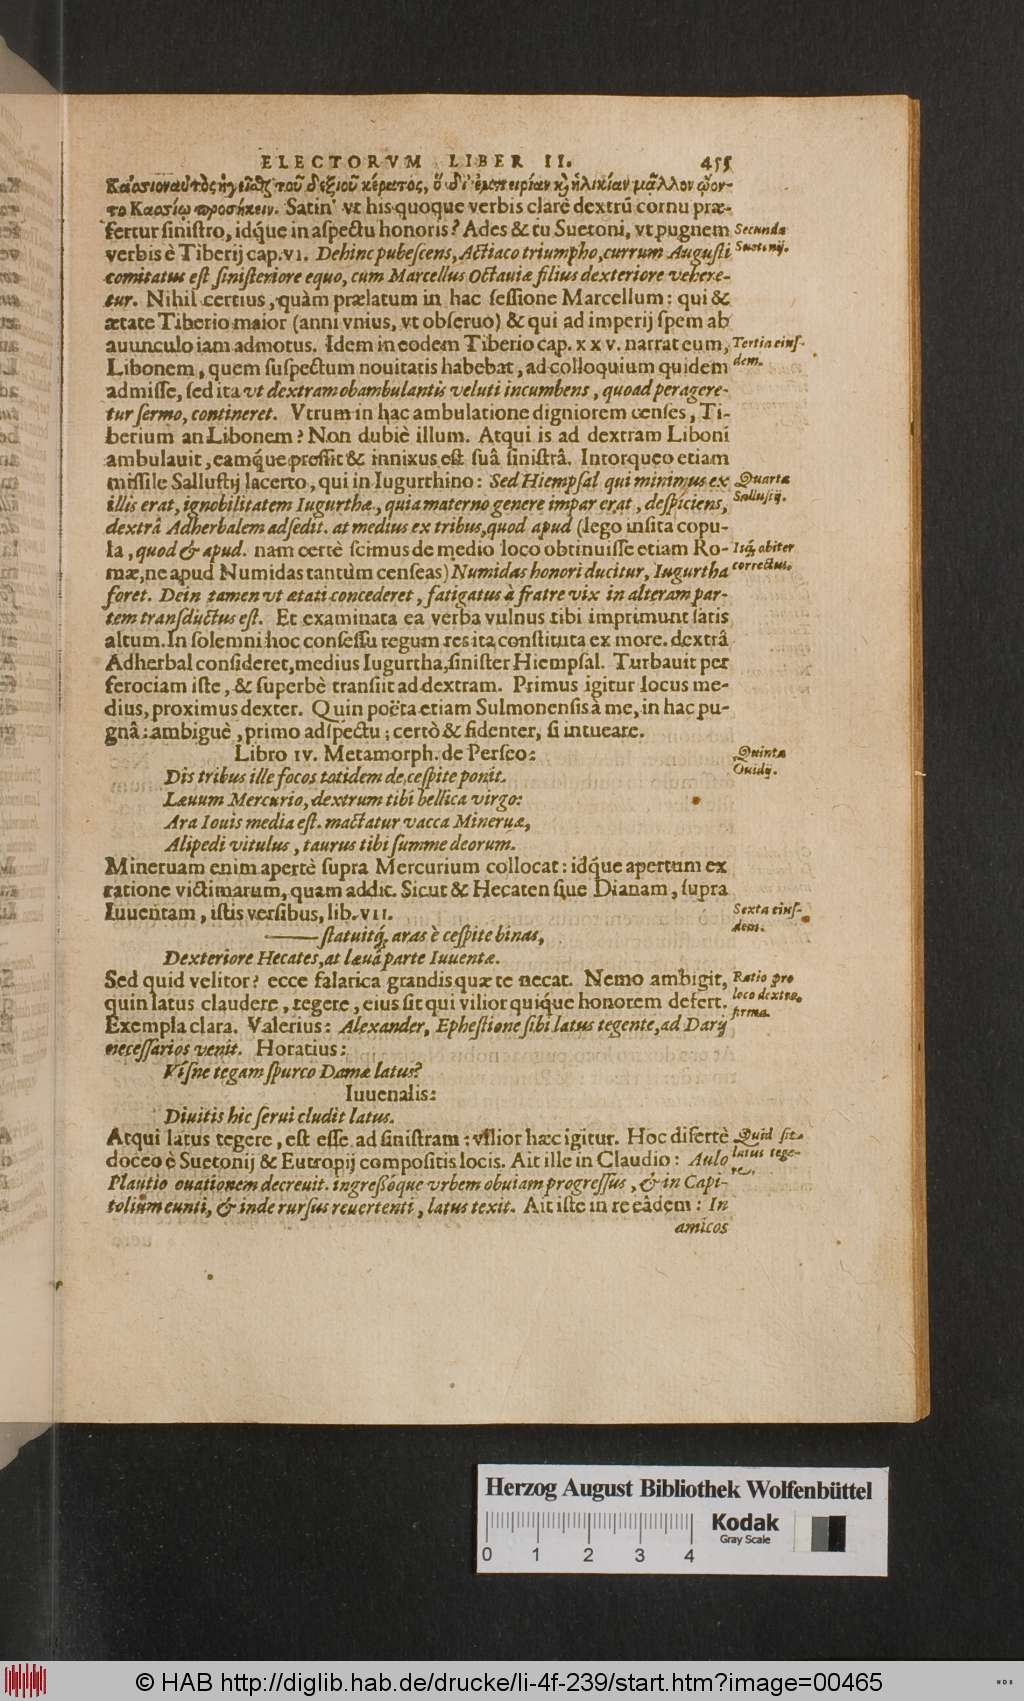 ELECTORVM LIBER II. 455
Κάσσιον αὐτὸς ἡγεῖσθαι τοῦ δεξιοῦ κέρατος, ὃ δι' ἐμπειρίαν κỳ ἡλικίαν μᾶλλον ᾤον-
το Κασσίῳ προσήκειν. Satin' vt his quoque verbis clarè dextrũ cornu præ-
fertur sinistro, idq́ue in aspectu honoris? Ades & tu Suetoni, vt pugnem
Secunda
verbis è Tiberij cap. VI. Dehinc pubescens, Actiaco triumpho, currum Augusti
Suetonij.
comitatus est sinisteriore equo, cum Marcellus Octauiæ filius dexteriore vehere-
tur. Nihil certius, quàm prælatum in hac sessione Marcellum: qui &
ætate Tiberio maior (anni vnius, vt obseruo) & qui ad imperij spem ab
auunculo iam admotus. Idem in eodem Tiberio cap. XXV. narrat eum,
Tertia eius-
Libonem, quem suspectum nouitatis habebat, ad colloquium quidem
dem.
admisse, sed ita vt dextram obambulantis veluti incumbens, quoad peragere-
tur sermo, contineret. Vtrum in hac ambulatione digniorem censes, Ti-
berium an Libonem? Non dubiè illum. Atqui is ad dextram Liboni
ambulauit, eamq́ue pressit & innixus est suâ sinistrâ. Intorqueo etiam
missile Sallustij lacerto, qui in Iugurthino: Sed Hiempsal qui minimus ex
Quarta
illis erat, ignobilitatem Iugurthæ, quia materno genere impar erat, despiciens,
Sallustij.
dextrâ Adherbalem adsedit. at medius ex tribus, quod apud (lego insita copu-
la, quod & apud. nam certè scimus de medio loco obtinuisse etiam Ro-
Isq́, obiter
mæ, ne apud Numidas tantùm censeas) Numidas honori ducitur, Iugurtha
correctus.
foret. Dein tamen vt ætati concederet, fatigatus à fratre vix in alteram par-
tem transductus est. Et examinata ea verba vulnus tibi imprimunt satis
altum. In solemni hoc consessu regum res ita constituta ex more. dextrâ
Adherbal consideret, medius Iugurtha, sinister Hiempsal. Turbauit per
ferociam iste, & superbè transiit ad dextram. Primus igitur locus me-
dius, proximus dexter. Quin poëta etiam Sulmonensis à me, in hac pu-
gnâ: ambiguè, primo adspectu; certò & fidenter, si intueare.
Libro IV. Metamorph. de Perseo:
Quinta
Ouidij.
Dis tribus ille focos totidem de cespite ponit.
Læuum Mercurio, dextrum tibi bellica virgo:
Ara Iouis media est. mactatur vacca Mineruæ,
Alipedi vitulus, taurus tibi summe deorum.
Mineruam enim apertè supra Mercurium collocat: idq́ue apertum ex
ratione victimarum, quam addit. Sicut & Hecaten siue Dianam, supra
Iuuentam, istis versibus, lib. VII.
Sexta eius-
dem.
—— statuitq́, aras è cespite binas,
Dexteriore Hecates, at læuâ parte Iuuentæ.
Sed quid velitor? ecce falarica grandis quæ te necat. Nemo ambigit,
Ratio pro
quin latus claudere, tegere, eius sit qui vilior quiq́ue honorem defert.
loco dextro,
firma.
Exempla clara. Valerius: Alexander, Ephestione sibi latus tegente, ad Darij
necessarios venit. Horatius:
Visne tegam spurco Damæ latus?
Iuuenalis:
Diuitis hic serui cludit latus.
Atqui latus tegere, est esse ad sinistram: vilior hæc igitur. Hoc disertè
Quid sit
doceo è Suetonij & Eutropij compositis locis. Ait ille in Claudio: Aulo
latus tege-
re.
Plautio ouationem decreuit. ingressóque vrbem obuiam progressus, & in Capi-
tolium eunti, & inde rursus reuertenti, latus texit. Ait iste in re eâdem: In
amicos
Herzog August Bibliothek Wolfenbüttel
0 1 2 3 4
Kodak
Gray Scale
© HAB http://diglib.hab.de/drucke/li-4f-239/start.htm?image=00465